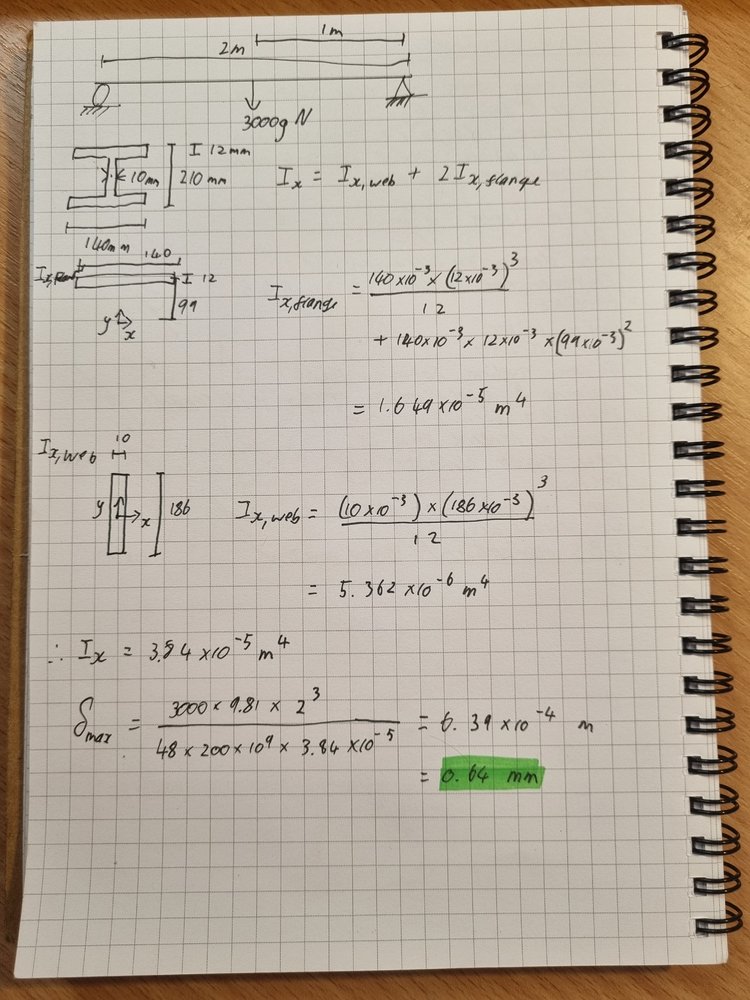 1m
2m
3000g N
12mm
10mm
210mm
140mm
Ix = Ix,web + 2Ix,flange
140
12
99
y x
Ix,flange = 140×10⁻³ × (12×10⁻³)³ / 12
+ 140×10⁻³ × 12×10⁻³ × (99×10⁻³)²
= 1.649×10⁻⁵ m⁴
Ix,web
10
y x 186
Ix,web = (10×10⁻³) × (186×10⁻³)³ / 12
= 5.362×10⁻⁶ m⁴
∴ Ix = 3.84×10⁻⁵ m⁴
δmax = 3000 × 9.81 × 2³ / 48 × 200×10⁹ × 3.84×10⁻⁵ = 6.39×10⁻⁴ m
= 0.64 mm